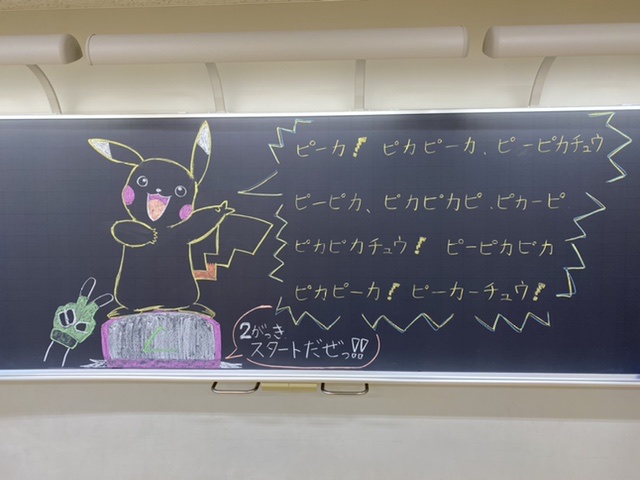 ピーカ! ピカピーカ、ピーピカチュウ
ピーピカ、ピカピカピ、ピカーピ
ピカピカチュウ! ピーピカピカ
ピカピーカ! ピーカーチュウ!
2がっき
スタートだぜっ!!